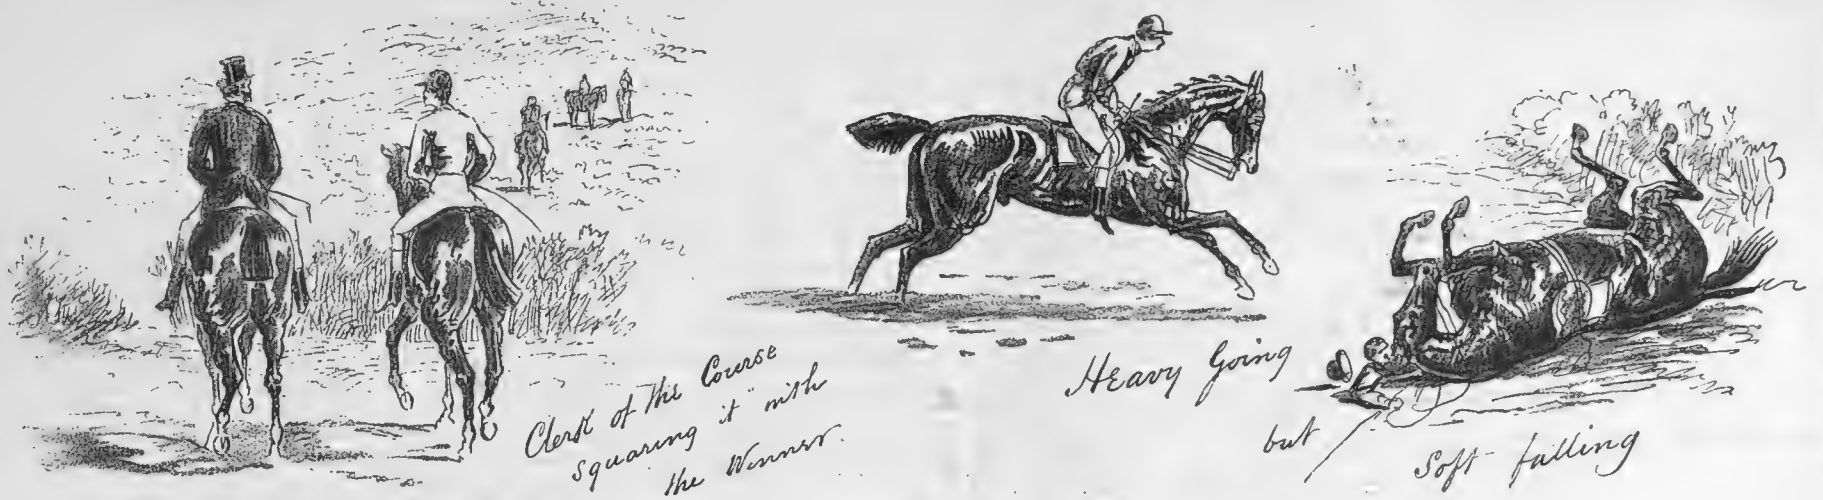 Clerk of the Course
squaring it" with
the Winner.
Heavy Going
but
Soft falling